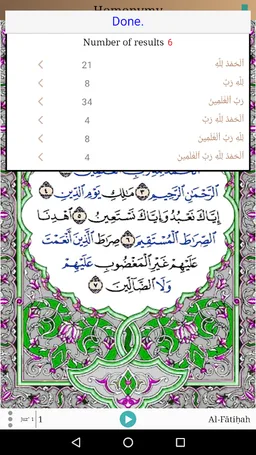 Homonymy
Done.
Number of results 6
21 اَلحَمدُ لِلَّهِ
8 لِلَّهِ رَبِّ
34 رَبِّ العَٰلَمِينَ
4 اَلحَمدُ لِلَّهِ رَبِّ
8 لِلَّهِ رَبِّ العَٰلَمِينَ
4 اَلحَمدُ لِلَّهِ رَبِّ العَٰلَمِينَ
الرَّحْمَٰنِ الرَّحِيمِ ﴿٣﴾ مَالِكِ يَوْمِ الدِّينِ ﴿٤﴾
إِيَّاكَ نَعْبُدُ وَإِيَّاكَ نَسْتَعِينُ ﴿٥﴾ اهْدِنَا
الصِّرَاطَ الْمُسْتَقِيمَ ﴿٦﴾ صِرَاطَ الَّذِينَ أَنْعَمْتَ
عَلَيْهِمْ غَيْرِ الْمَغْضُوبِ عَلَيْهِمْ
وَلَا الضَّالِّينَ ﴿٧﴾
Juz' 1 1 Al-Fātiḥah